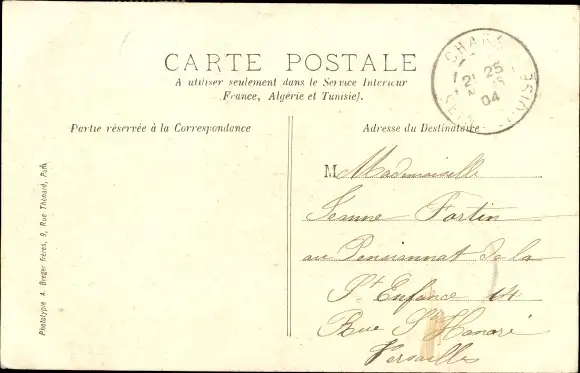 CARTE POSTALE
A utiliser seulement dans le Service Intérieur
(France, Algérie et Tunisie).
25
04
OISE
Partie réservée à la Correspondance
Adresse du Destinataire
M Mademoiselle
Jeanne Fortin
au Pensionnat de la
Ste Enfance 14
Rue St Honoré
Versailles
Phototypie A. Breger frères, 9, Rue Thénard, Paris